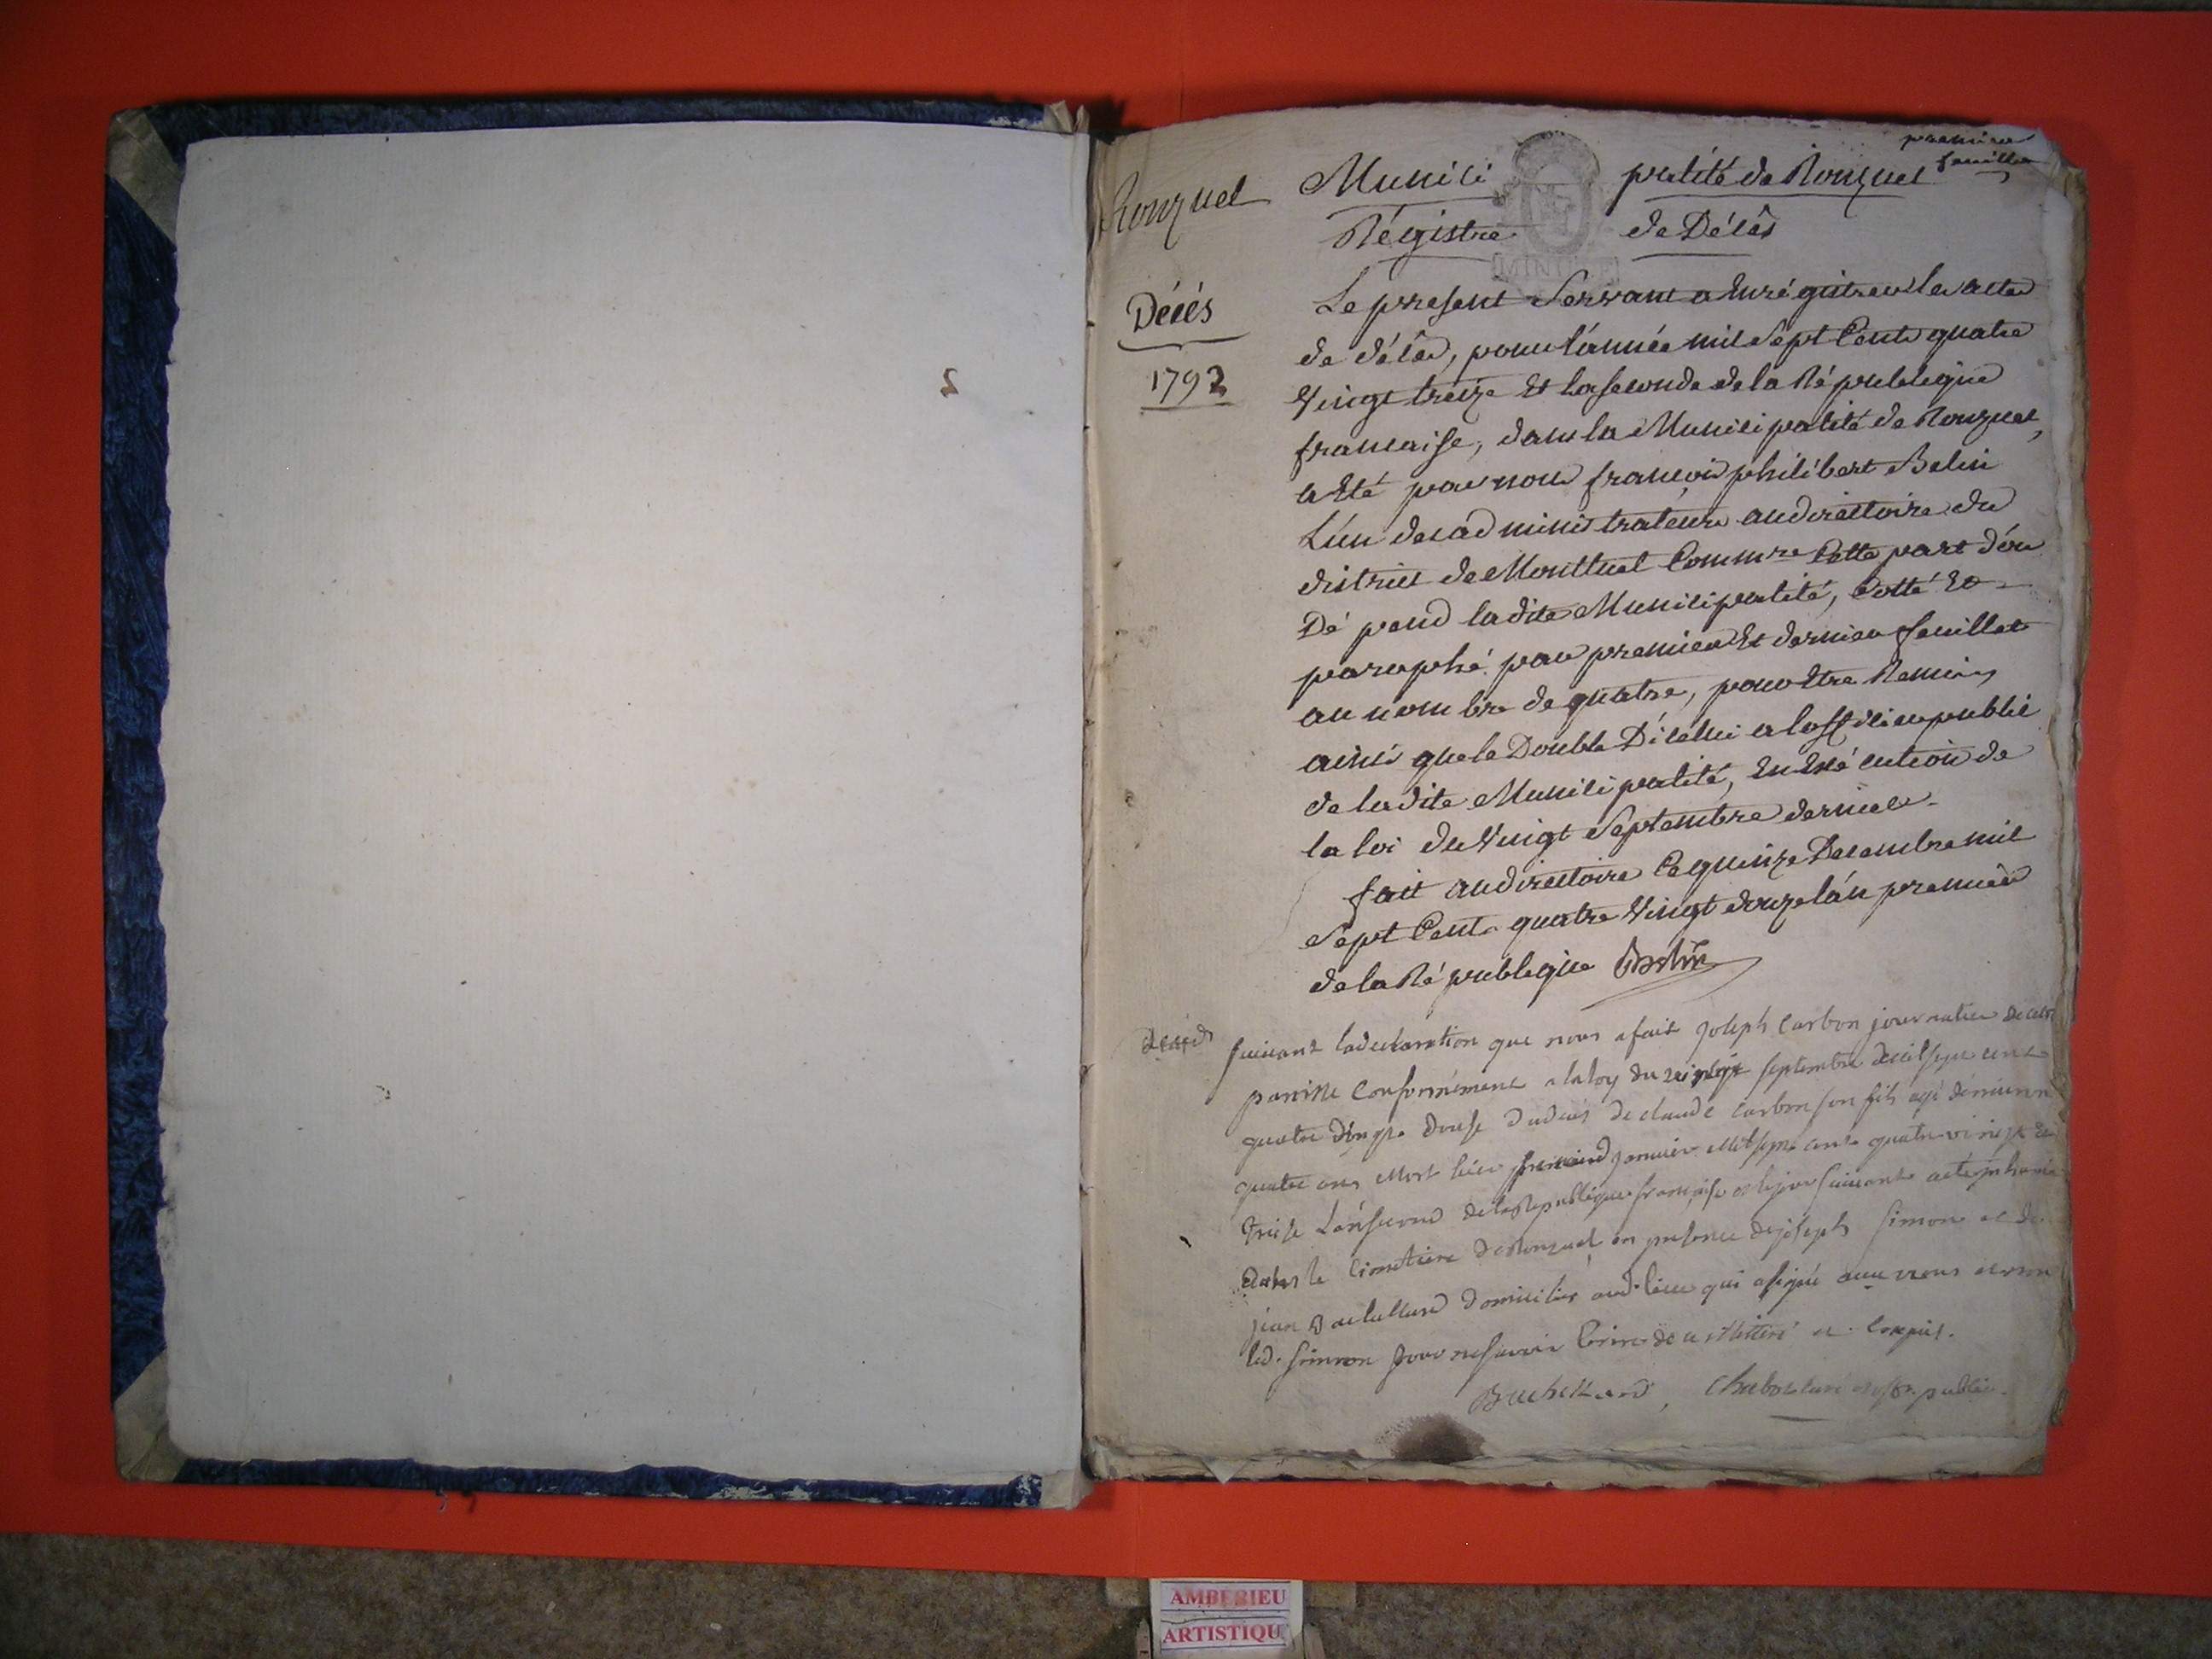 premier
feuillet
Ronzuel
Munici palité de Ronzuel
Régistre de Décès
MINUTE
Décès
1792
2
Le present Servant a Enrégistrer les actes
de décès, pour l'année mil Sept Cents quatre
Vingt treize Et la seconde de la République
francaise, dans la Municipalité de Ronzuel,
a Eté par nous françois philibert Belin
L'un des administrateurs au directoire du
district de Montluel Commre Cette part d'ou
Dépend ladite Municipalité, Cotté Et
paraphé par premier Et dernier feuillet
au nombre de quatre, pour Etre Remis,
ainsi que le Double D'icelui a lofficier public
de ladite Municipalité, En Exécution de
la loi du Vingt Septembre dernier.
fait au directoire Ce quinze Decembre mil
Sept Cents quatre Vingt douze l'án premier
de la République Belin
décéds
suivant la declaration que nous a fait joseph Carbon journalier de cette
paroisse Conformément a la loy du septembre mil sept cent
quatre vingt douse du deces de claude Carbon son fils agé denviron
quatre ans Mort hier janvier Mil sept cent quatre vingt
treise L'an second de la Republique française et le jour suivant a été inhumé
dans le Cimetiere de Ronzuel en presence de joseph Simon et de
jean Buchallard domicilies aud. lieu qui a signé avec nous et non
led. Simon pour ne savoir Ecrire de ce et requis.
Buchallard, public
AMBERIEU
ARTISTIQU